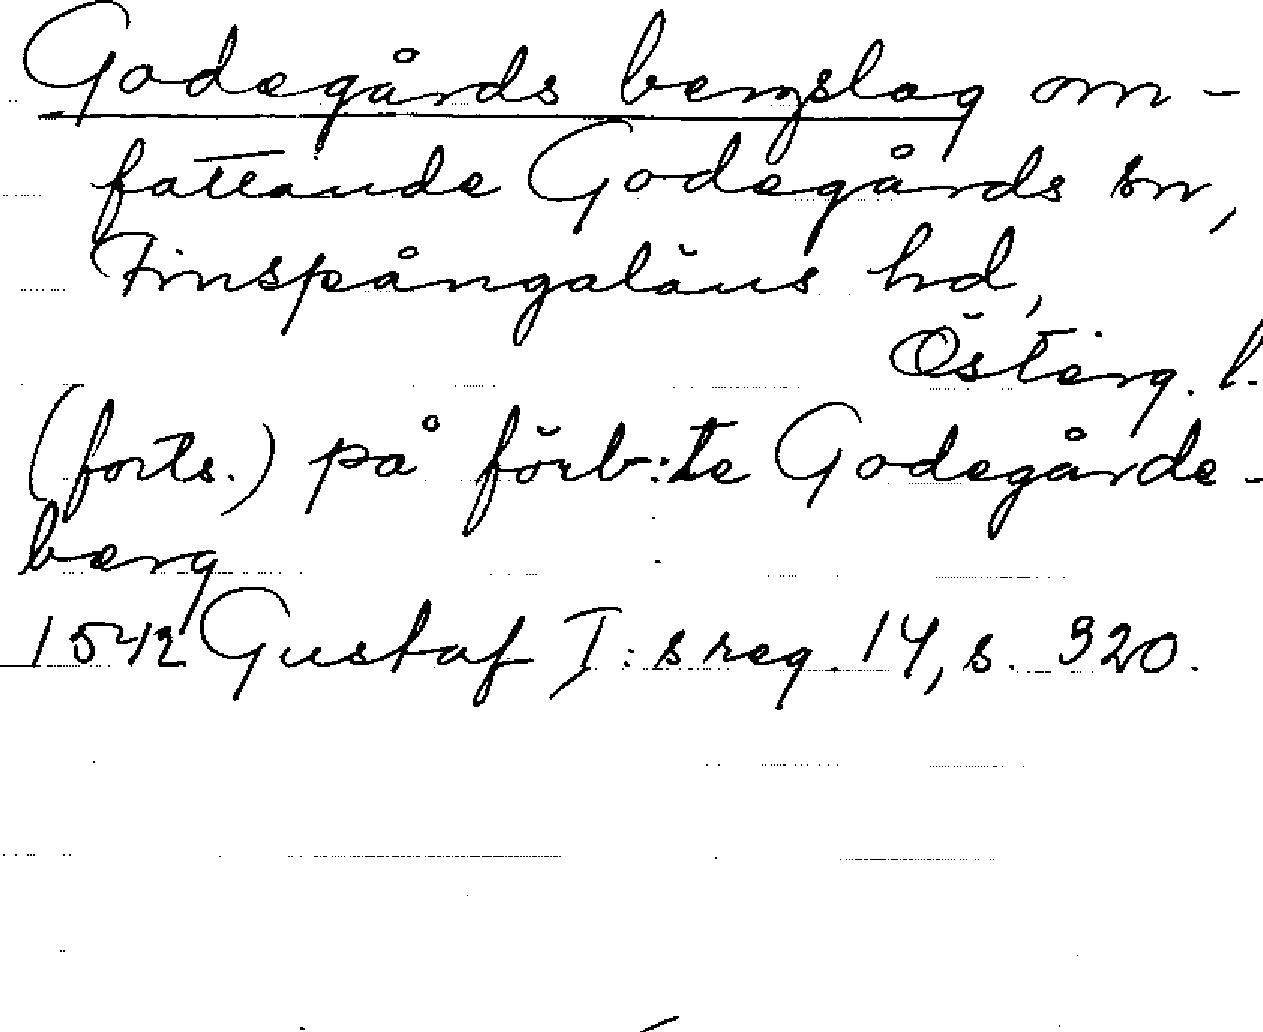 Godegårds bergslag om-
fattande Godegårds sn,
Finspångaläns hd,
Österg. l.
(forts.) på förb:te Godegårde-
berg
1542 Gustaf I:s reg. 14, s. 320.